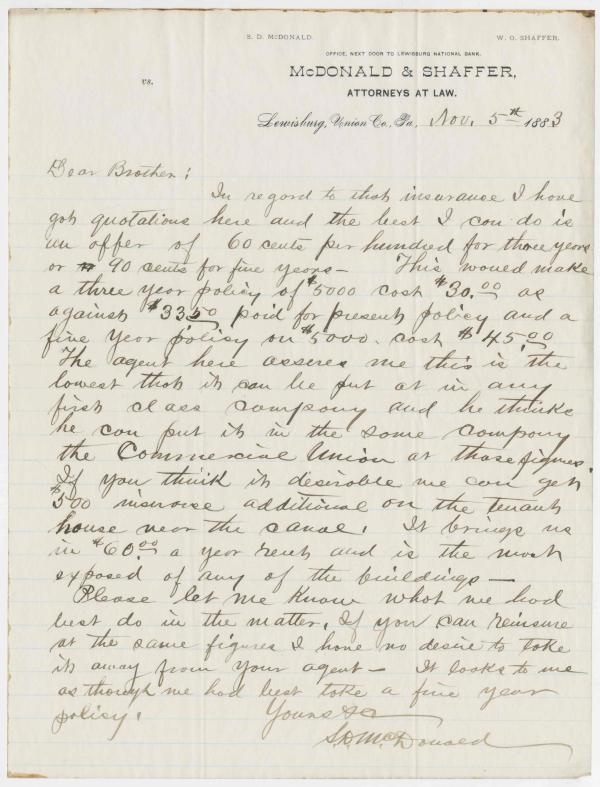 S. D. McDONALD. W. O. SHAFFER.
OFFICE, NEXT DOOR TO LEWISBURG NATIONAL BANK.
McDONALD & SHAFFER,
vs.
ATTORNEYS AT LAW.
Lewisburg, Union Co., Pa., Nov. 5th 1883
Dear Brother:
In regard to that insurance I have
got quotations here and the best I can do is
an offer of 60 cents per hundred for three years
or 90 cents for five years - This would make
a three year policy of $5000 cost $30.00 as
against $33.50 paid for present policy and a
five year policy on $5000. cost $45.00
The agent here asseres me this is the
lowest that it can be put at in any
first class company and he thinks
he can put it in the same company
the Commercial Union at those figures.
If you think it desirable we can get
$500 insurance additional on the tenant
house near the canal. It brings us
in $60.00 a year rent and is the most
exposed of any of the buildings —
Please let me know what we had
best do in the matter. If you can reinsure
at the same figures I have no desire to take
it away from your agent — It looks to me
as though we had best take a five year
policy. Yours &c
S. D. McDonald